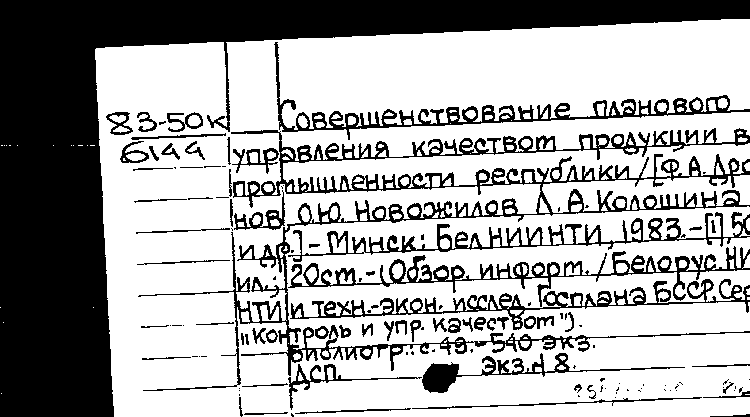 83-50к Совершенствование планового
6144 управления качеством продукции в
промышленности республики/[Ф.А.Дро
нов, О.Ю. Новожилов, Л.А. Колошина
и др.]-Минск: БелНИИНТИ, 1983.-[1],50
ил.; 20см.-(Обзор. информ./Белорус.НИ
НТИ и техн.-экон. исслед. Госплана БССР.Сер
"Контроль и упр. качеством").
Библиогр.: с.49.-540 экз.
ДСП. Экз.№8.